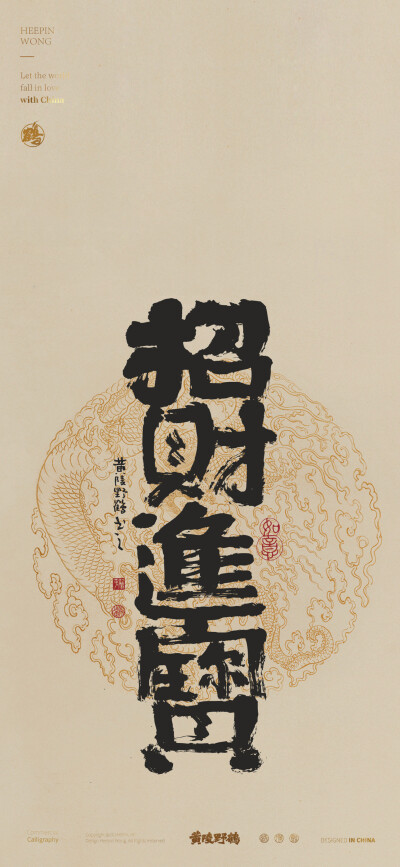 HEEPIN
WONG
Let the
fall in love
with China
招財進寶
黄陵野鶴書之
如意
Calligraphy
黄陵野鶴
DESIGNED IN CHINA